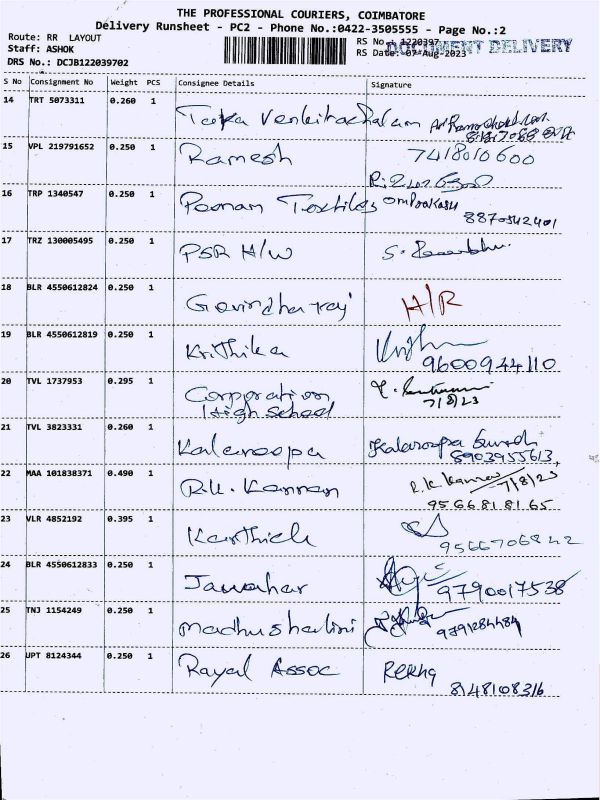 THE PROFESSIONAL COURIERS, COIMBATORE
Delivery Runsheet - PC2 - Phone No.:0422-3505555 - Page No.:2
Route: RR LAYOUT
Staff: ASHOK
DRS No.: DCJB122039702
RS No.: 1220397
DOCUMENT DELIVERY
RS Date: 07-Aug-2023
S No Consignment No Weight PCS Consignee Details Signature
14 TRT 5073311 0.260 1
15 VPL 219791652 0.250 1 Ramesh 7418010600
16 TRP 1340547 0.250 1 Poonam Textiles Omprakash
8870542401
17 TRZ 130005495 0.250 1 PSR H/W
18 BLR 4550612824 0.250 1 Govindharaj H/R
19 BLR 4550612819 0.250 1 Krithika
9600944110
20 TVL 1737953 0.295 1 Corporation
High School 7/8/23
21 TVL 3823331 0.260 1 Kalaroopa Kalaroopa
8903955613
22 MAA 101838371 0.490 1 R.K. Kannan R.K. Kannan 7/8/23
9566818165
23 VLR 4852192 0.395 1 Karthick
9566706842
24 BLR 4550612833 0.250 1 Jawahar 9790017538
25 TNJ 1154249 0.250 1 Madhushalini 9791284484
26 JPT 8124344 0.250 1 Rayal Assoc Rekha
8148108316